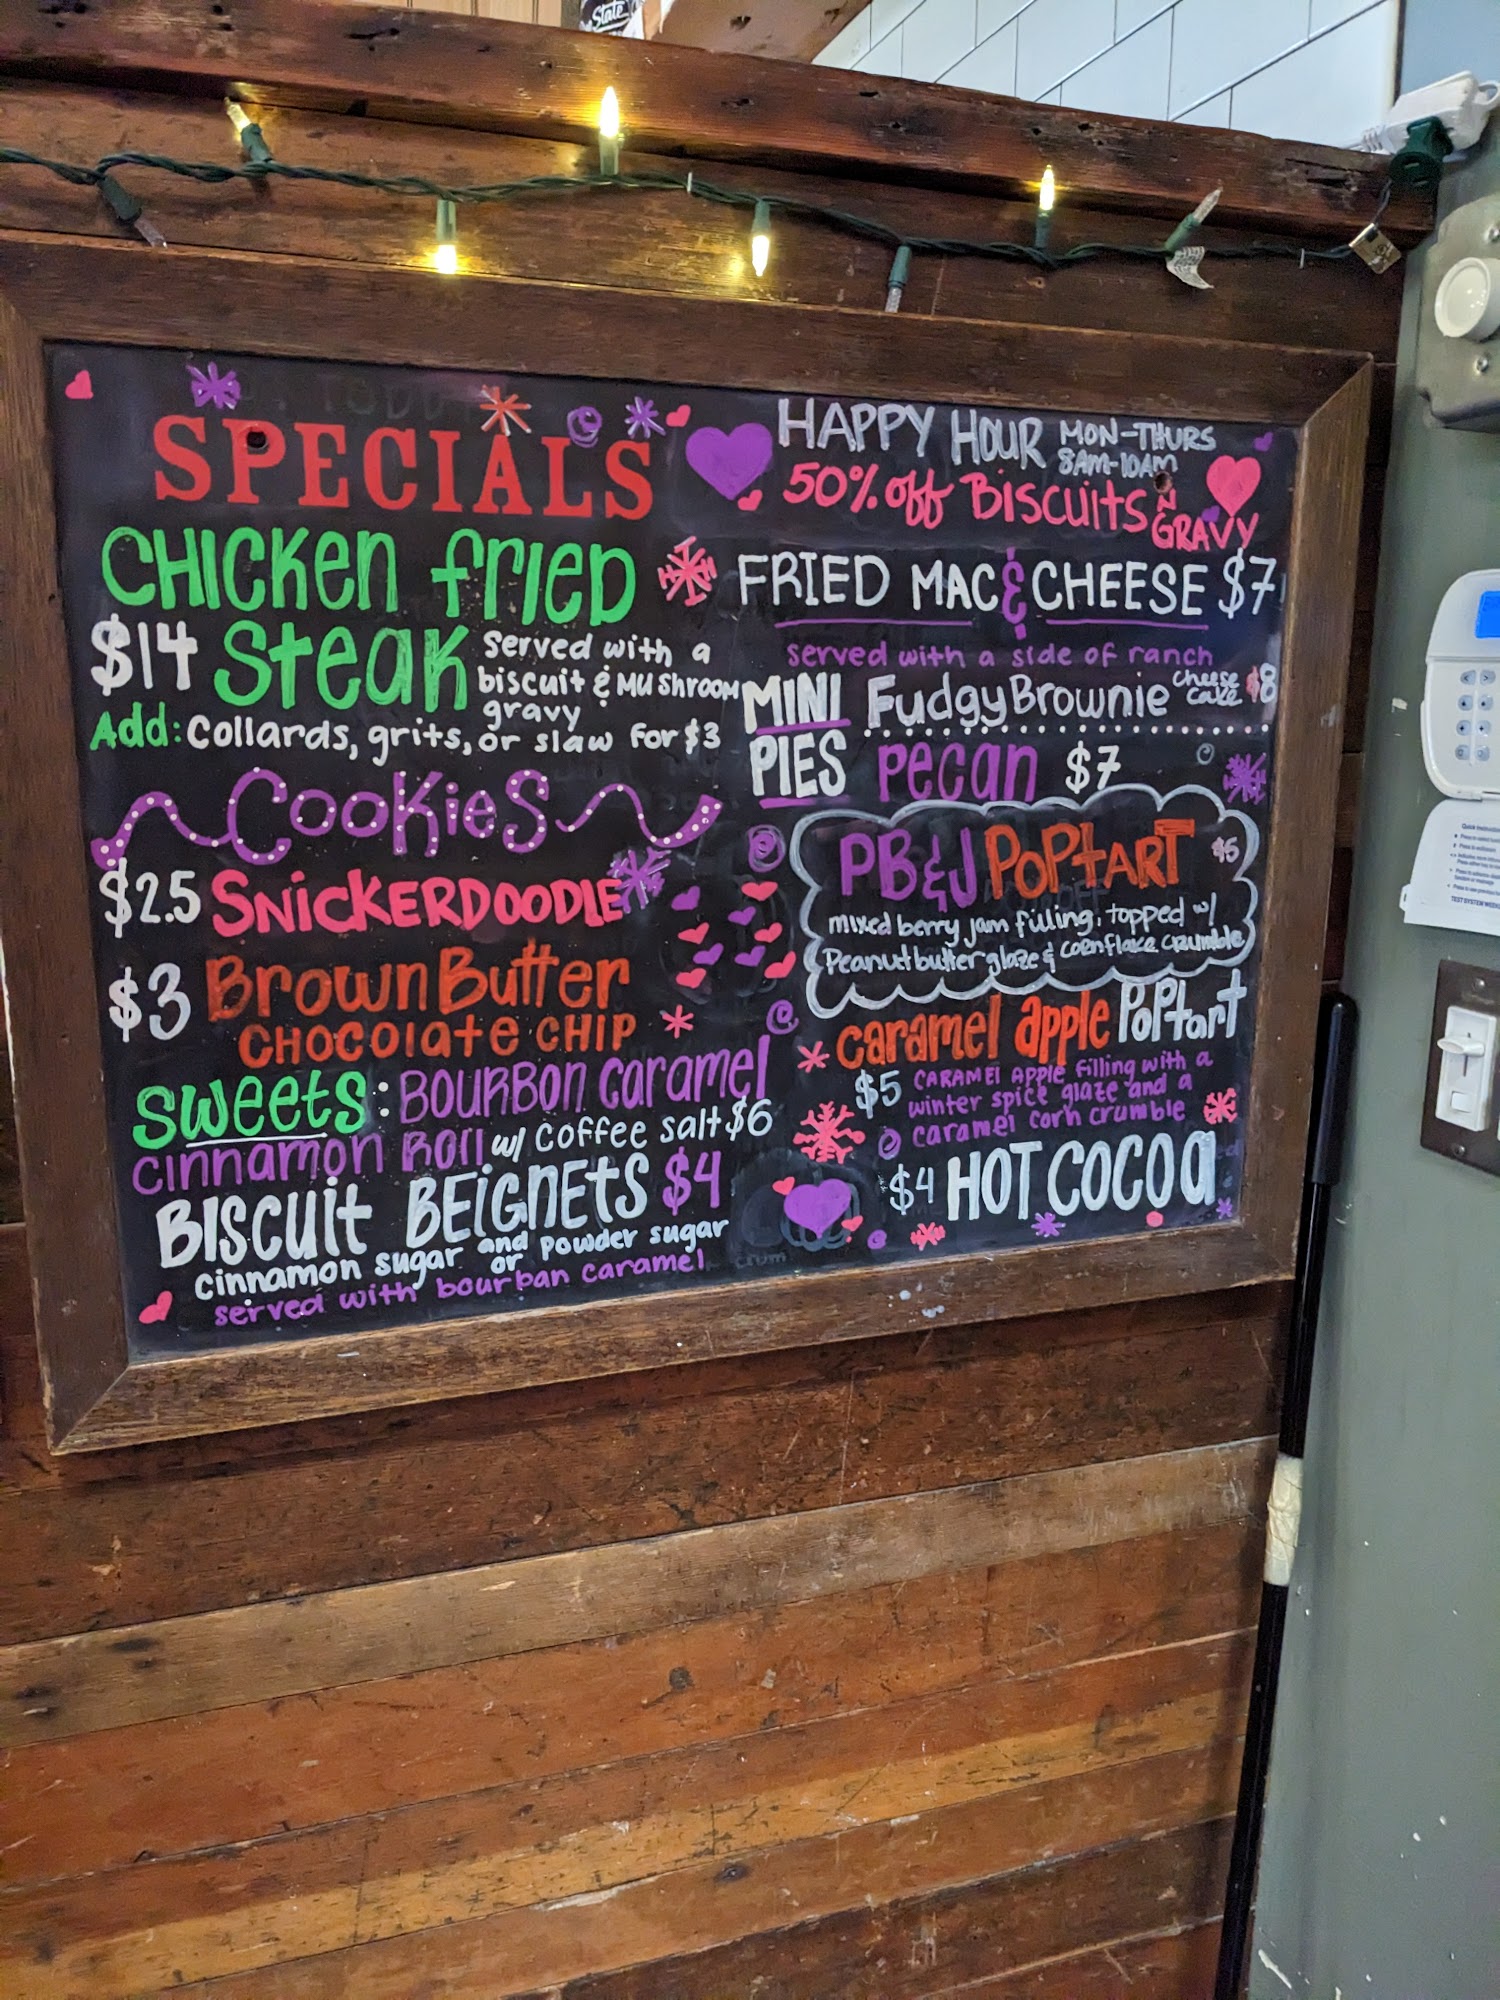 State
SPECIALS
CHICKEN fried
$14 Steak served with a
biscuit & mushroom
gravy
Add: Collards, grits, or slaw for $3
Cookies
$2.5 SNICKERDOODLE
$3 Brown Butter
CHOCOlate CHIP
Sweets: BOURBON caramel
cinnamon Roll w/ coffee salt $6
BISCUIT BEIGNETS $4
cinnamon sugar and powder sugar
or
served with bourban caramel
HAPPY HOUR MON-THURS
8AM-10AM
50% off Biscuits N
GRAVY
FRIED MAC & CHEESE $7
served with a side of ranch
MINI PIES
Fudgy Brownie cheese cake $8
pecan $7
PB&J POPtART $5
mixed berry jam filling, topped w/
Peanut butter glaze & cornflake crumble
caramel apple POPtart
$5 CARAMEL APPLE filling with a
winter spice glaze and a
caramel corn crumble
$4 HOT COCOa
crum
TEST SYSTEM WEEKLY